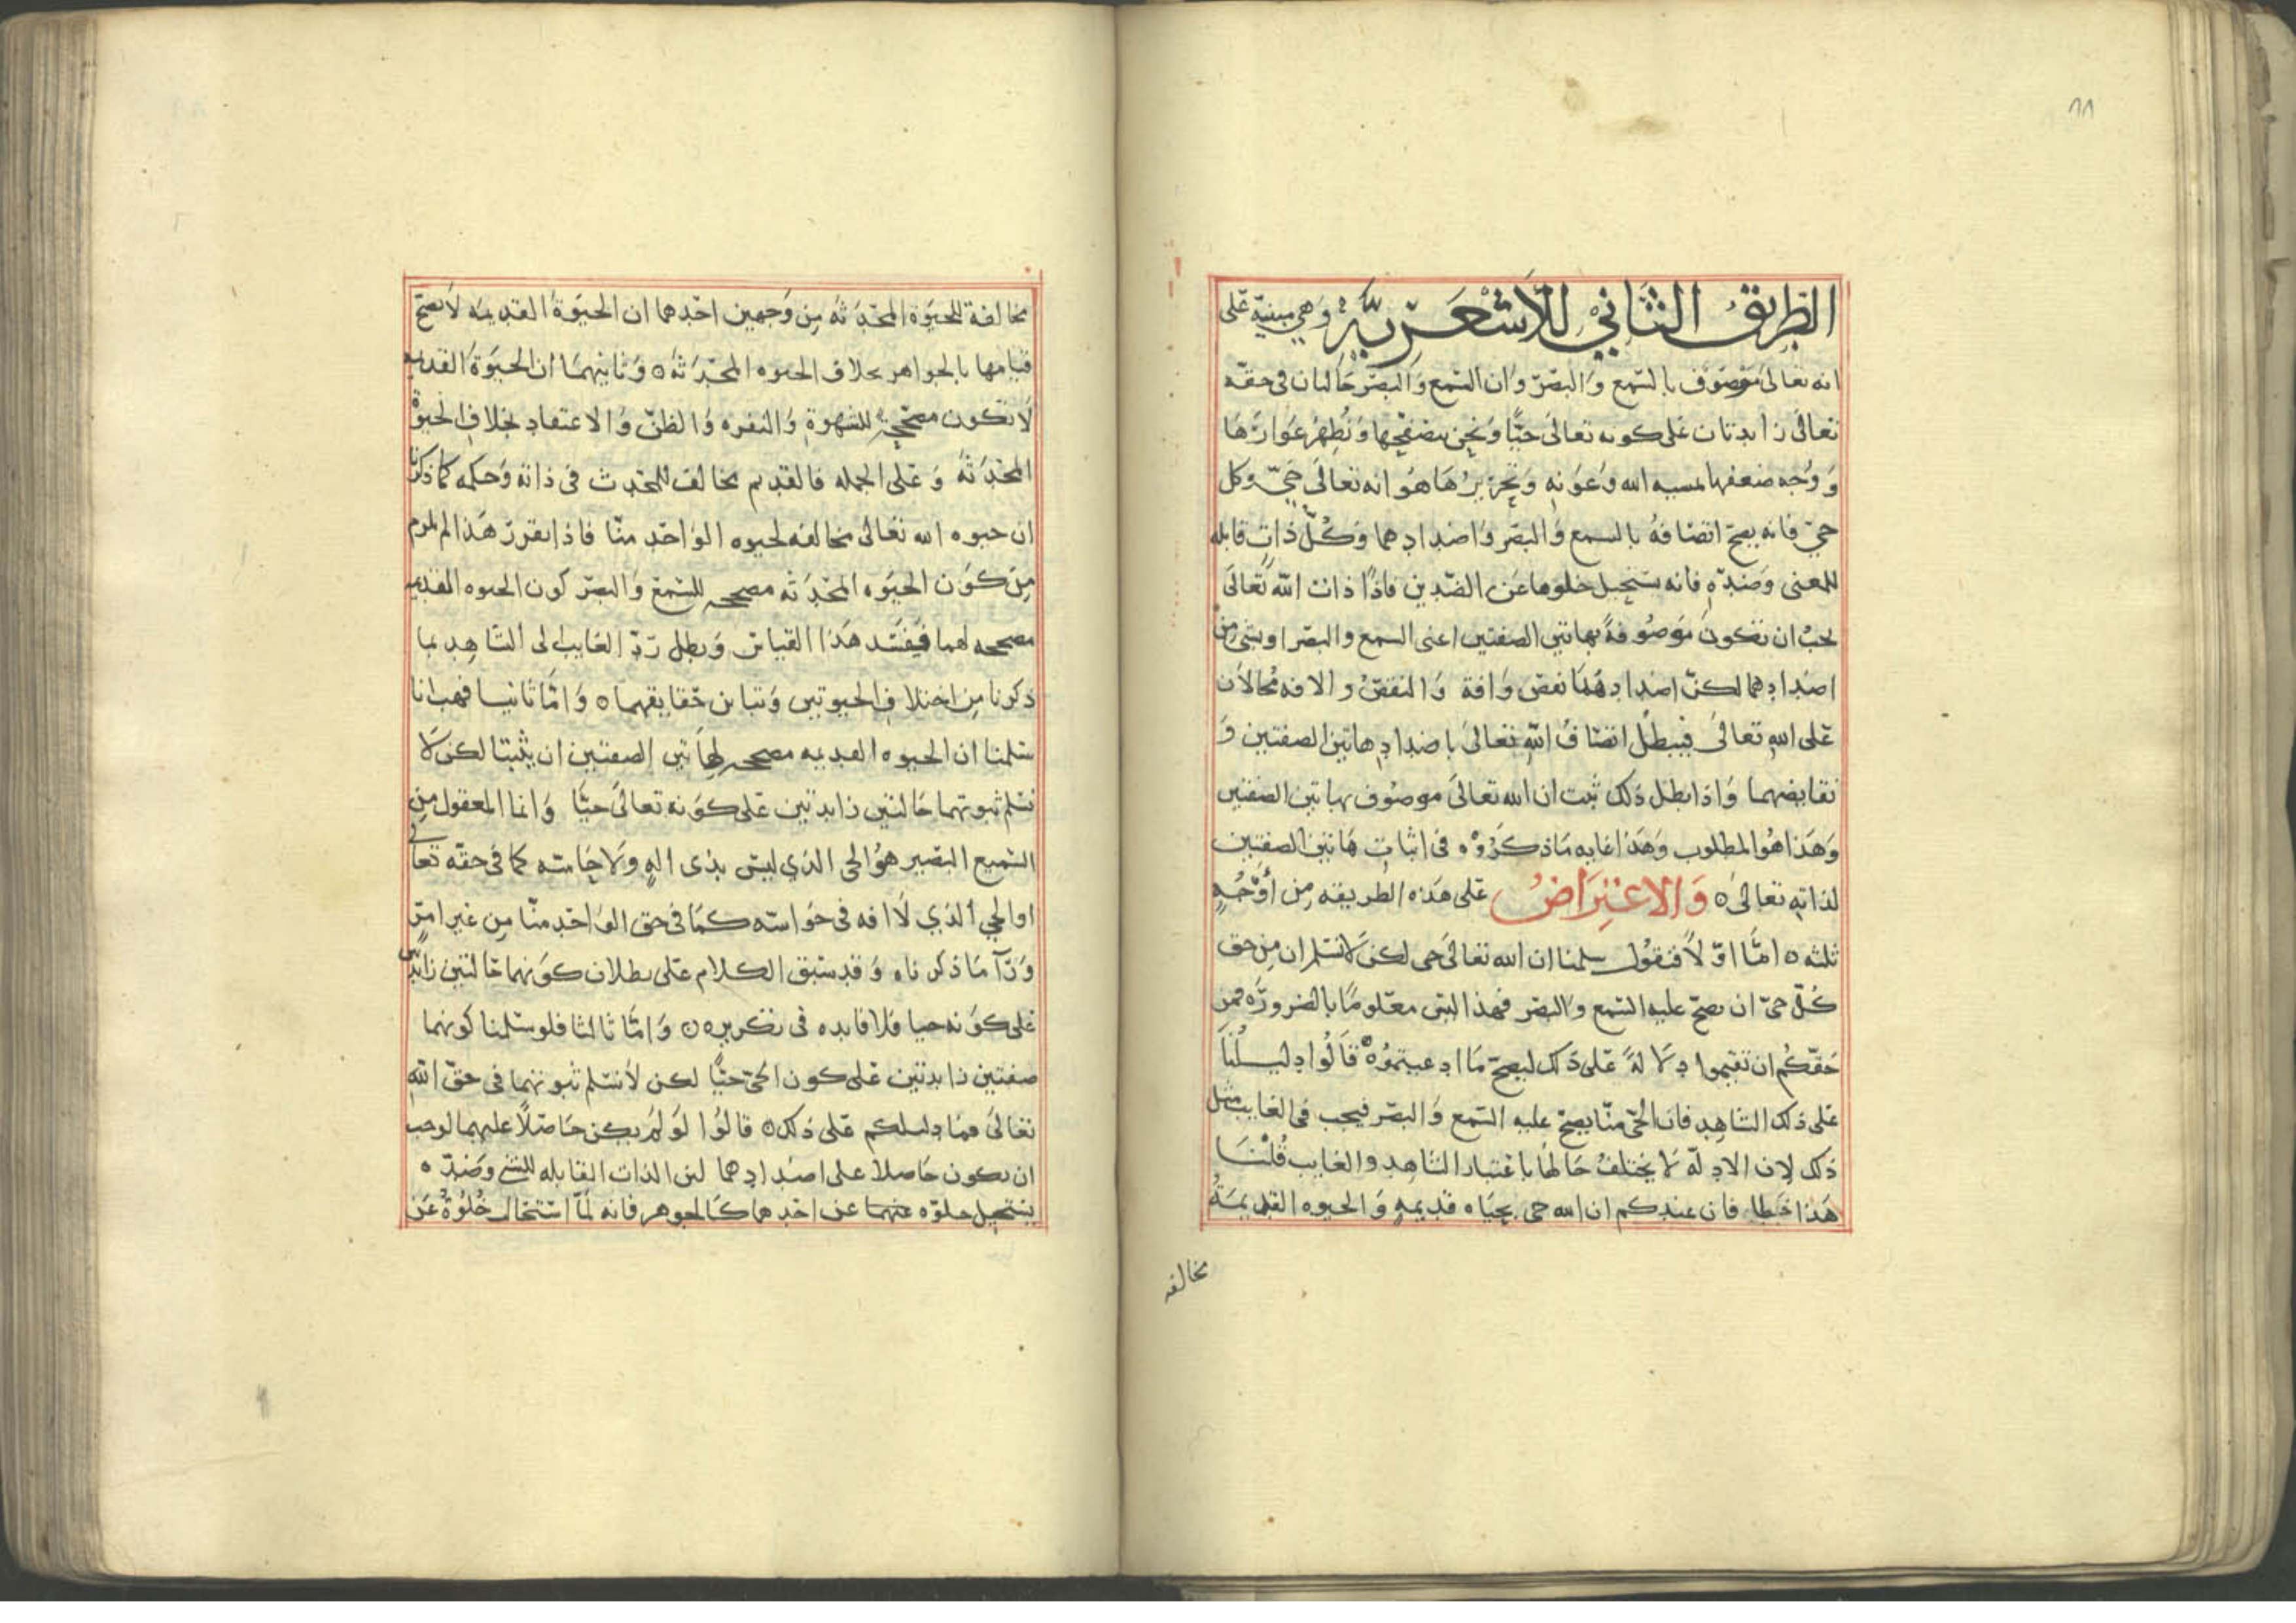 ٨٨
الطريق الثاني للأشعرية وهي مبنية على
انه تعالى موصوف بالسمع والبصر وان السمع والبصر حالتان فى حقه
تعالى زايدتان على كونه تعالى حيًّا ونحن نتصفحها ونظهر عوارها
ووجه ضعفها بمسيه الله وعونه وتحريرها هو انه تعالى حيّ وكل
حيّ فانه يصح اتصافه بالسمع والبصر واضدادهما وكلّ ذات قابله
للمعنى وضدّه فانه يستحيل خلوها عن الضّدين فاذًا ذات الله تعالى
يجب ان تكون موصوفةً بهاتين الصفتين اعنى السمع والبصر او بشى من
اضدادهما لكنّ اضدادهما نقص وافة والنقص والافه محالان
على الله تعالى فيبطل اتصاف الله تعالى باضداد هاتين الصفتين و
نقايضهما واذا بطل ذلك ثبت ان الله تعالى موصوف بهاتين الصفتين
وهذا هو المطلوب وهذا غايه ما ذكروه فى اثبات هاتين الصفتين
لذاته تعالى ه والاعتراض على هذه الطريقه من أوجُهٍ
ثلثه ه امّا اوّلاً فنقول سلمنا ان الله تعالى حى لكن لا نسلم ان من حق
كلّ حىّ ان يصحّ عليه السّمع والبصر فهذا ليس معلومًا بالضرورة فمن
حقّكم ان تقيموا دلالةً على ذلك ليصحّ ما ادعيتموه ه قالوا دليلنا
على ذلك الشاهد فان الحىّ منّا يصحّ عليه السّمع والبصر فيجب فى الغايب مثل
ذلك لان الادلّه لا يختلف حالها باعتبار الشاهد والغايب قلنا
هذا خطا فان عندكم ان الله حى بحياه قديمه والحيوه القديمة
مخالفه
مخالفة للحيوة المحدثه من وجهين احدهما ان الحيوة القديمه لا يصح
قيامها بالجواهر بخلاف الحيوه المحدثه ه وثانيهما ان الحيوة القديمه
لا تكون مصححة للشهوة والنفره والظنّ والاعتقاد بخلاف الحيوة
المحدثه وعلى الجمله فالقديم مخالف للمحدث فى ذاته وحكمه كما ذكرنا
ان حيوه الله تعالى مخالفه لحيوه الواحد منّا فاذا تقرر هذا لم يلزم
من كون الحيوه المحدثه مصححه للسّمع والبصر كون الحيوه القديمه
مصححه لهما فيفسد هذا القياس وبطل ردّ الغايب الى الشاهد بما
ذكرنا من اختلاف الحيوتين وتباين حقايقهما ه وامّا ثانيا فهب انا
سلمنا ان الحيوه القديمه مصححه لهاتين الصفتين ان يثبتا لكن لا
نسلم ثبوتهما حالتين زايدتين على كونه تعالى حيًّا وانما المعقول من
السّميع البصير هو الحى الذي ليس بذى الهٍ ولا حاسّه كما فى حقّه تعالى
او الحي الذي لا افه فى حواسّه كما فى حق الواحد منّا من غير امرٍ
ورآ ما ذكرناه وقد سبق الكلام على بطلان كونهما حالتين زايدتين
على كونه حيا فلا فايده فى تكريره ه وامّا ثالثا فلو سلمنا كونهما
صفتين زايدتين على كون الحىّ حيًّا لكن لا نسلم ثبوتهما فى حقّ الله
تعالى فما دليلكم على ذلك ه قالوا لو لم يكن حاصلاً عليهما لوجب
ان يكون حاصلا على اضدادهما لان الذات القابله للشئ وضدّه
يستحيل خلوّه عنهما عن احدهما كالجوهر فانه لمّا استحال خلوّه عن